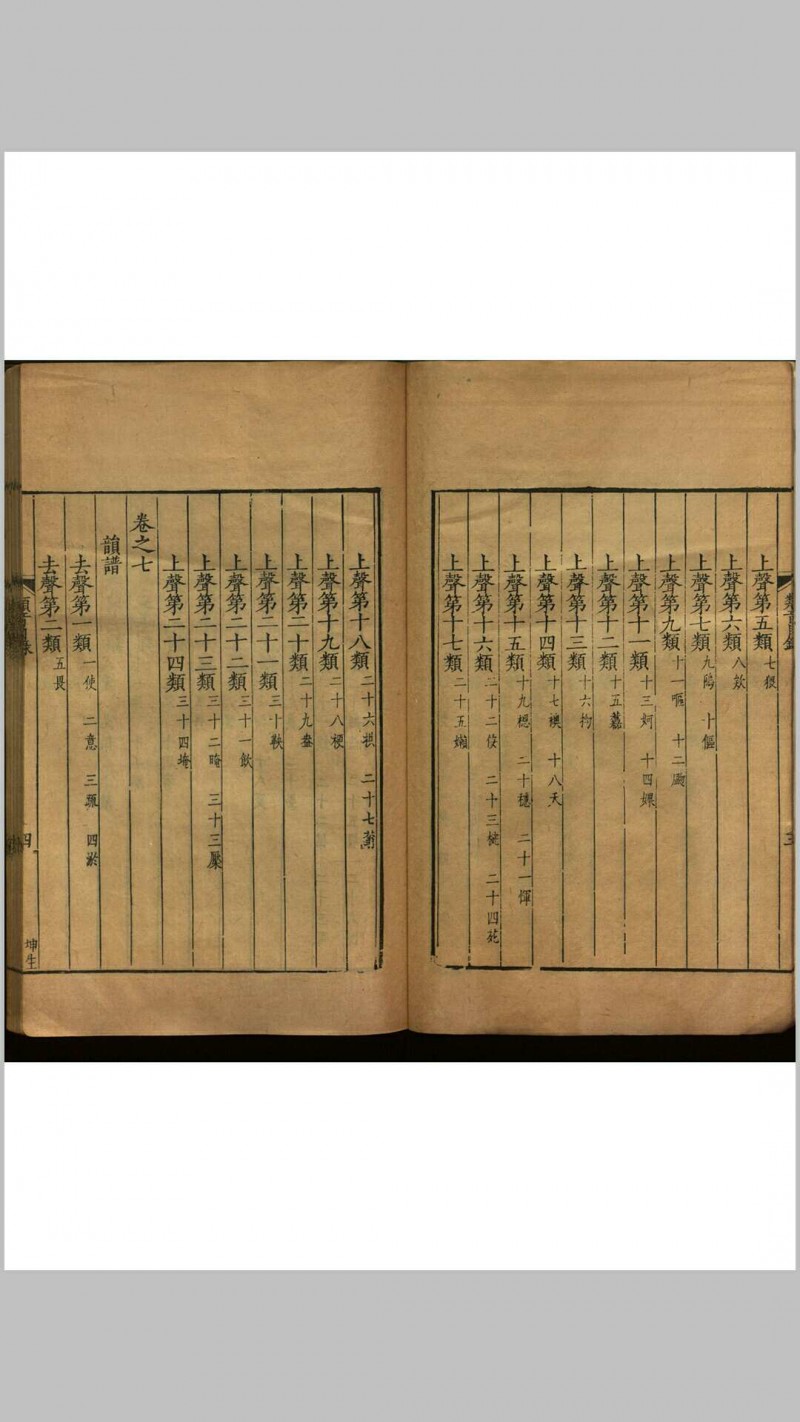 上聲第五類 七猥
上聲第六類 八欸
上聲第七類 九隝 十傴
上聲第九類 十一嘔 十二
上聲第十一類 十三妸 十四婐
上聲第十二類 十五藹
上聲第十三類 十六抣
上聲第十四類 十七襖 十八夭
上聲第十五類 十九 二十穩 二十一惲
上聲第十六類 二十二 二十三 二十四苑
上聲第十七類 二十五嬾
上聲第十八類 二十六 二十七
上聲第十九類 二十八梗
上聲第二十類 二十九盎
上聲第二十一類 三十鞅
上聲第二十二類 三十一飲
上聲第二十三類 三十二晻 三十三黡
上聲第二十四類 三十四埯
卷之七
韻譜
去聲第一類 一使 二意 三 四淤
去聲第二類 五畏
類音目錄
四
坤生